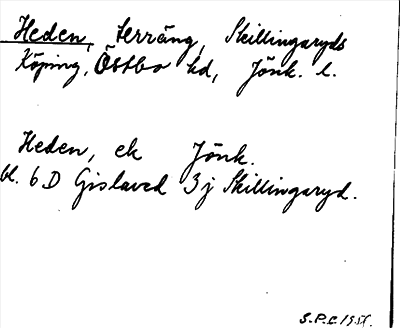 Heden, terräng, Skillingaryds
Köping, Östbo hd, Jönk. l.
Heden, ek Jönk.
bl. 6 D Gislaved 3 j Skillingaryd.
S.P.C. 19